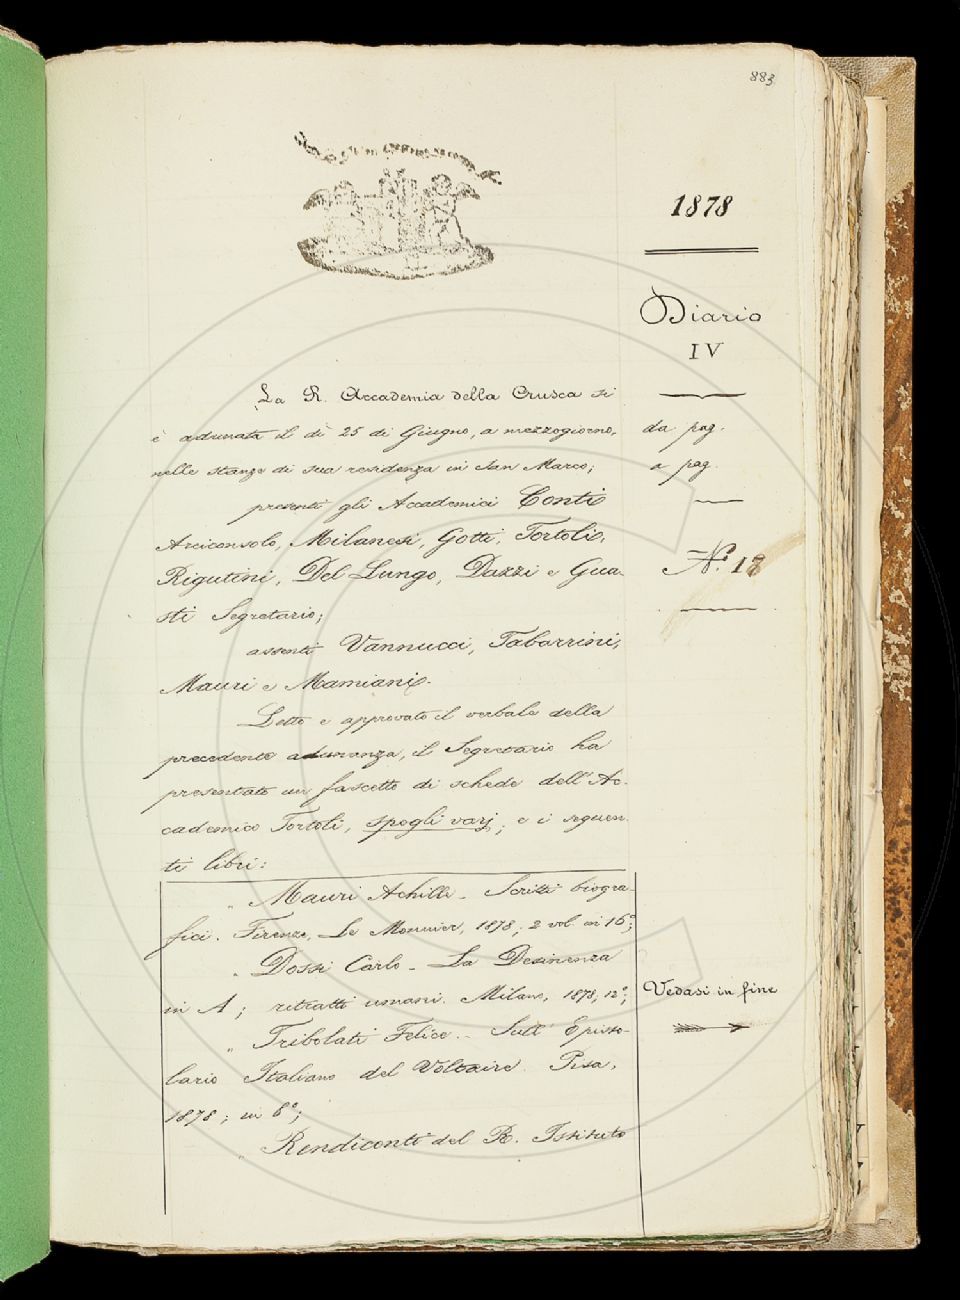 883
1878
Diario
IV
La R. Accademia della Crusca si
è adunata il dì 25 di Giugno, a mezzogiorno,
nelle stanze di sua residenza in San Marco;
da pag.
a pag.
presenti gli Accademici Conti
Arciconsolo, Milanesi, Gotti, Tortoli,
Rigutini, Del Lungo, Dazzi e Gua-
sti Segretario;
N.° 18
assenti Vannucci, Tabarrini,
Mauri e Mamiani.
Letto e approvato il verbale della
precedente adunanza, il Segretario ha
presentato un fascetto di schede dell'Ac-
cademico Tortoli, spogli varj; e i seguen-
ti libri:
„ Mauri Achille - Scritti biogra-
fici. Firenze, Le Monnier, 1878; 2 vol. in 16°;
„ Dossi Carlo - La Desinenza
in A; ritratti umani. Milano, 1878, 12°;
Vedasi in fine
„ Tribolati Felice - Sull' Episto-
lario Italiano del Voltaire. Pisa,
1878; in 8°;
„ Rendiconti del R. Istituto